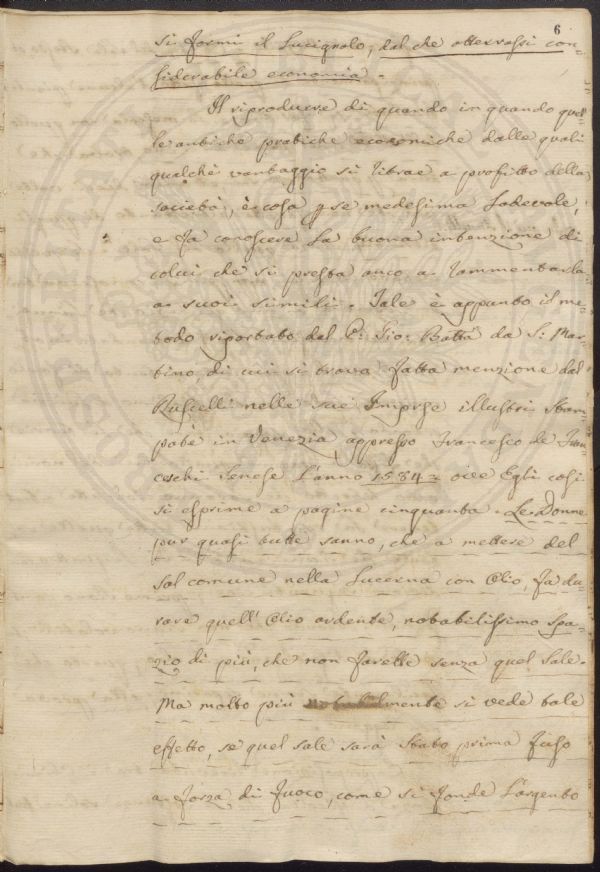 6
si formi il Lucignolo, dal che otterrassi con-
siderabile economia.
Il riprodurre di quando in quando quel-
le antiche pratiche economiche dalle quali
qualche vantaggio si ritrae a profitto della
società, è cosa p se medesima Lodevole,
e fà conoscere la buona intenzione di
colui che si presta anco a rammentarla
a suoi simili. Tale è appunto il me-
todo riportato dal P: Gio: Batta da S: Mar-
tino, di cui si trova fatta menzione dal
Ruscelli nelle sue Imprese illustri Stam
pate in Venezia appresso Francesco de Fran
ceschi Senese L'anno 1584 Egli così
si esprime a pagine cinquanta. Le Donne
pur quasi tutte sanno, che a mettere del
Sal comune nella Lucerna con Olio, fa du-
rare quell' Olio ardente, notabilissimo Spa-
zio di più, che non farebbe senza quel Sale.
Ma molto più notabilmente si vede tale
effetto, se quel sale sarà stato prima fuso
a forza di fuoco, come si fonde L'argento